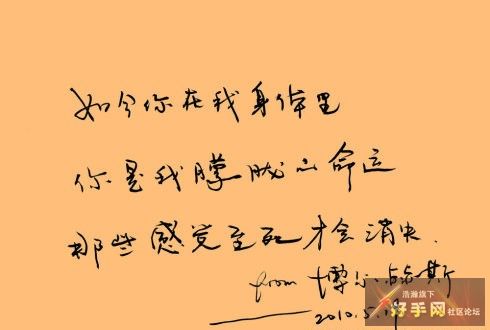 如今你在我身体里
你是我朦胧的命运
那些感觉至死才会消失.
from 博尔赫斯
2010.5.19
浩瀚旗下
好手网 社区论坛